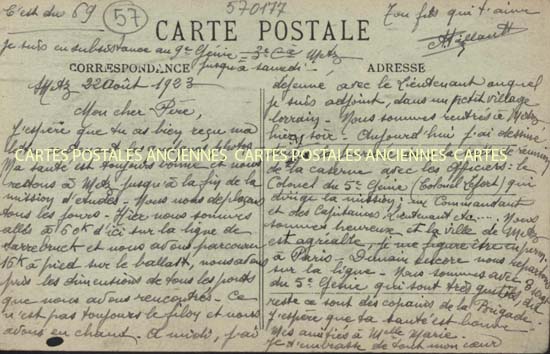 C'est du 69
57
570177
Ton fils qui t'aime
CARTE POSTALE
je suis en subsistance au 9e Génie - 3e Cie Metz
jusqu'à samedi.
CORRESPONDANCE
ADRESSE
Metz 22 Août 1923
Mon cher Père,
J'espère que tu as bien reçu ma
CARTES POSTALES ANCIENNES CARTES POSTALES ANCIENNES
Ma santé est toujours bonne et nous
restons à Metz jusqu'à la fin de la
mission d'études - Nous nous déplaçons
tous les jours - Hier nous sommes
allés à 60K d'ici sur la ligne de
Sarrebruck et nous avons parcouru
15K à pied sur le ballast, nous avons
pris les dimensions de tous les ponts
que nous avons rencontrés - Ce
n'est pas toujours le filon et nous
avons eu chaud. A midi, j'ai
déjeuné avec le Lieutenant auquel
je suis adjoint, dans un petit village
lorrain - Nous sommes rentrés à Metz
hier soir - Aujourd'hui j'ai dessiné
de la caserne avec les Officiers : le
Colonel du 5e Génie (Colonel Lefort) qui
dirige la mission, un Commandant
et des Capitaines, Lieutenant etc... Nous
sommes heureux et la ville de Metz
est agréable, je me figure être
à Paris. Demain encore nous repartons
sur la ligne - Nous sommes avec
du 5e Génie qui sont très gentils, du
reste ce sont des copains de la Brigade.
J'espère que ta santé est bonne
Mes amitiés à Melle Marie.
Je t'embrasse de tout mon cœur